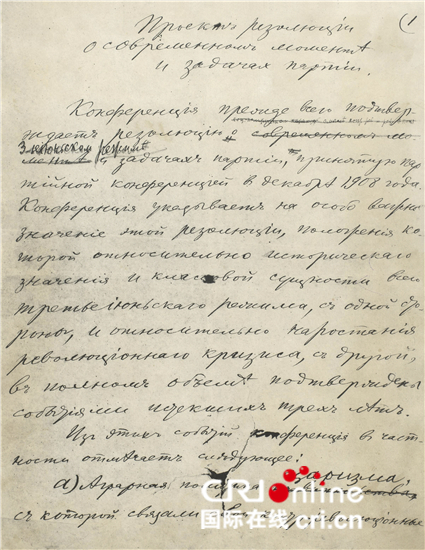 (1
Проектъ резолюціи
о современномъ моментѣ
и задачахъ партіи.
Конференція прежде всего подтвер-
ждаетъ резолюцію о современномъ мо-
3-ьеиюньскомъ режимѣ
ментѣ и задачахъ партіи, принятую пар-
тійной конференціей в декабрѣ 1908 года.
Конференція указываетъ на особо важное
значеніе этой резолюціи, положенія ко-
торой относительно историческаго
значенія и классовой сущности всего
третьеіюньскаго режима, съ одной сто-
роны, и относительно наростанія
революціоннаго кризиса, съ другой,
въ полномъ объемѣ подтверждены
событіями истекшихъ трехъ лѣтъ.
Изъ этихъ событій конференція в част-
ности отмѣчаетъ слѣдующее:
а) Аграрная царизма,
съ которой связали
CRI online
国际在线 cri.cn